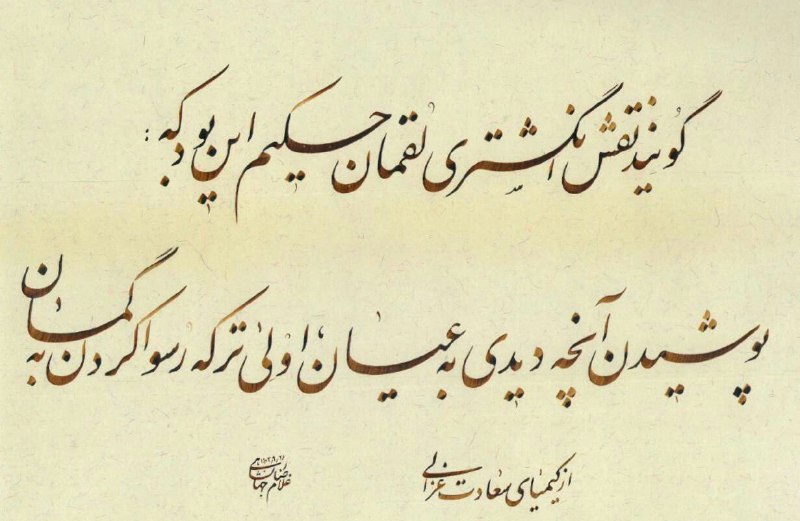 گویند نقش انگشتری لقمان حکیم این بود که :
پوشیدن آنچه دیدی به عیان، اولی‌تر که رسوا کردن به گمان
از کیمیای سعادت غزالی
غلامرضا